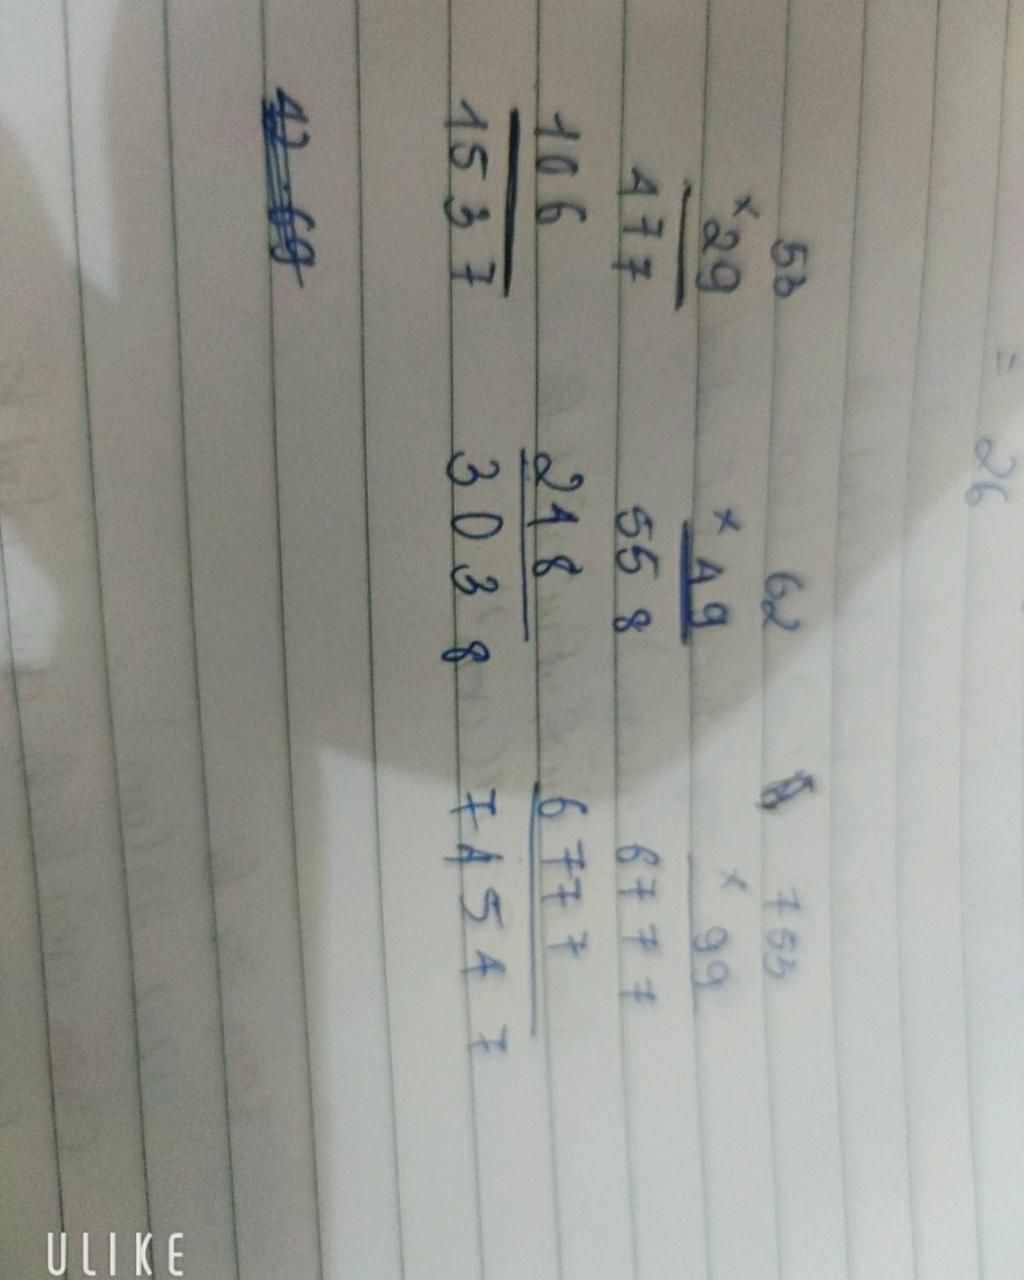 = 26
53 62 753
× 29 × 49 × 99
477 558 6777
106 248 6777
1537 3038 74547
ULIKE